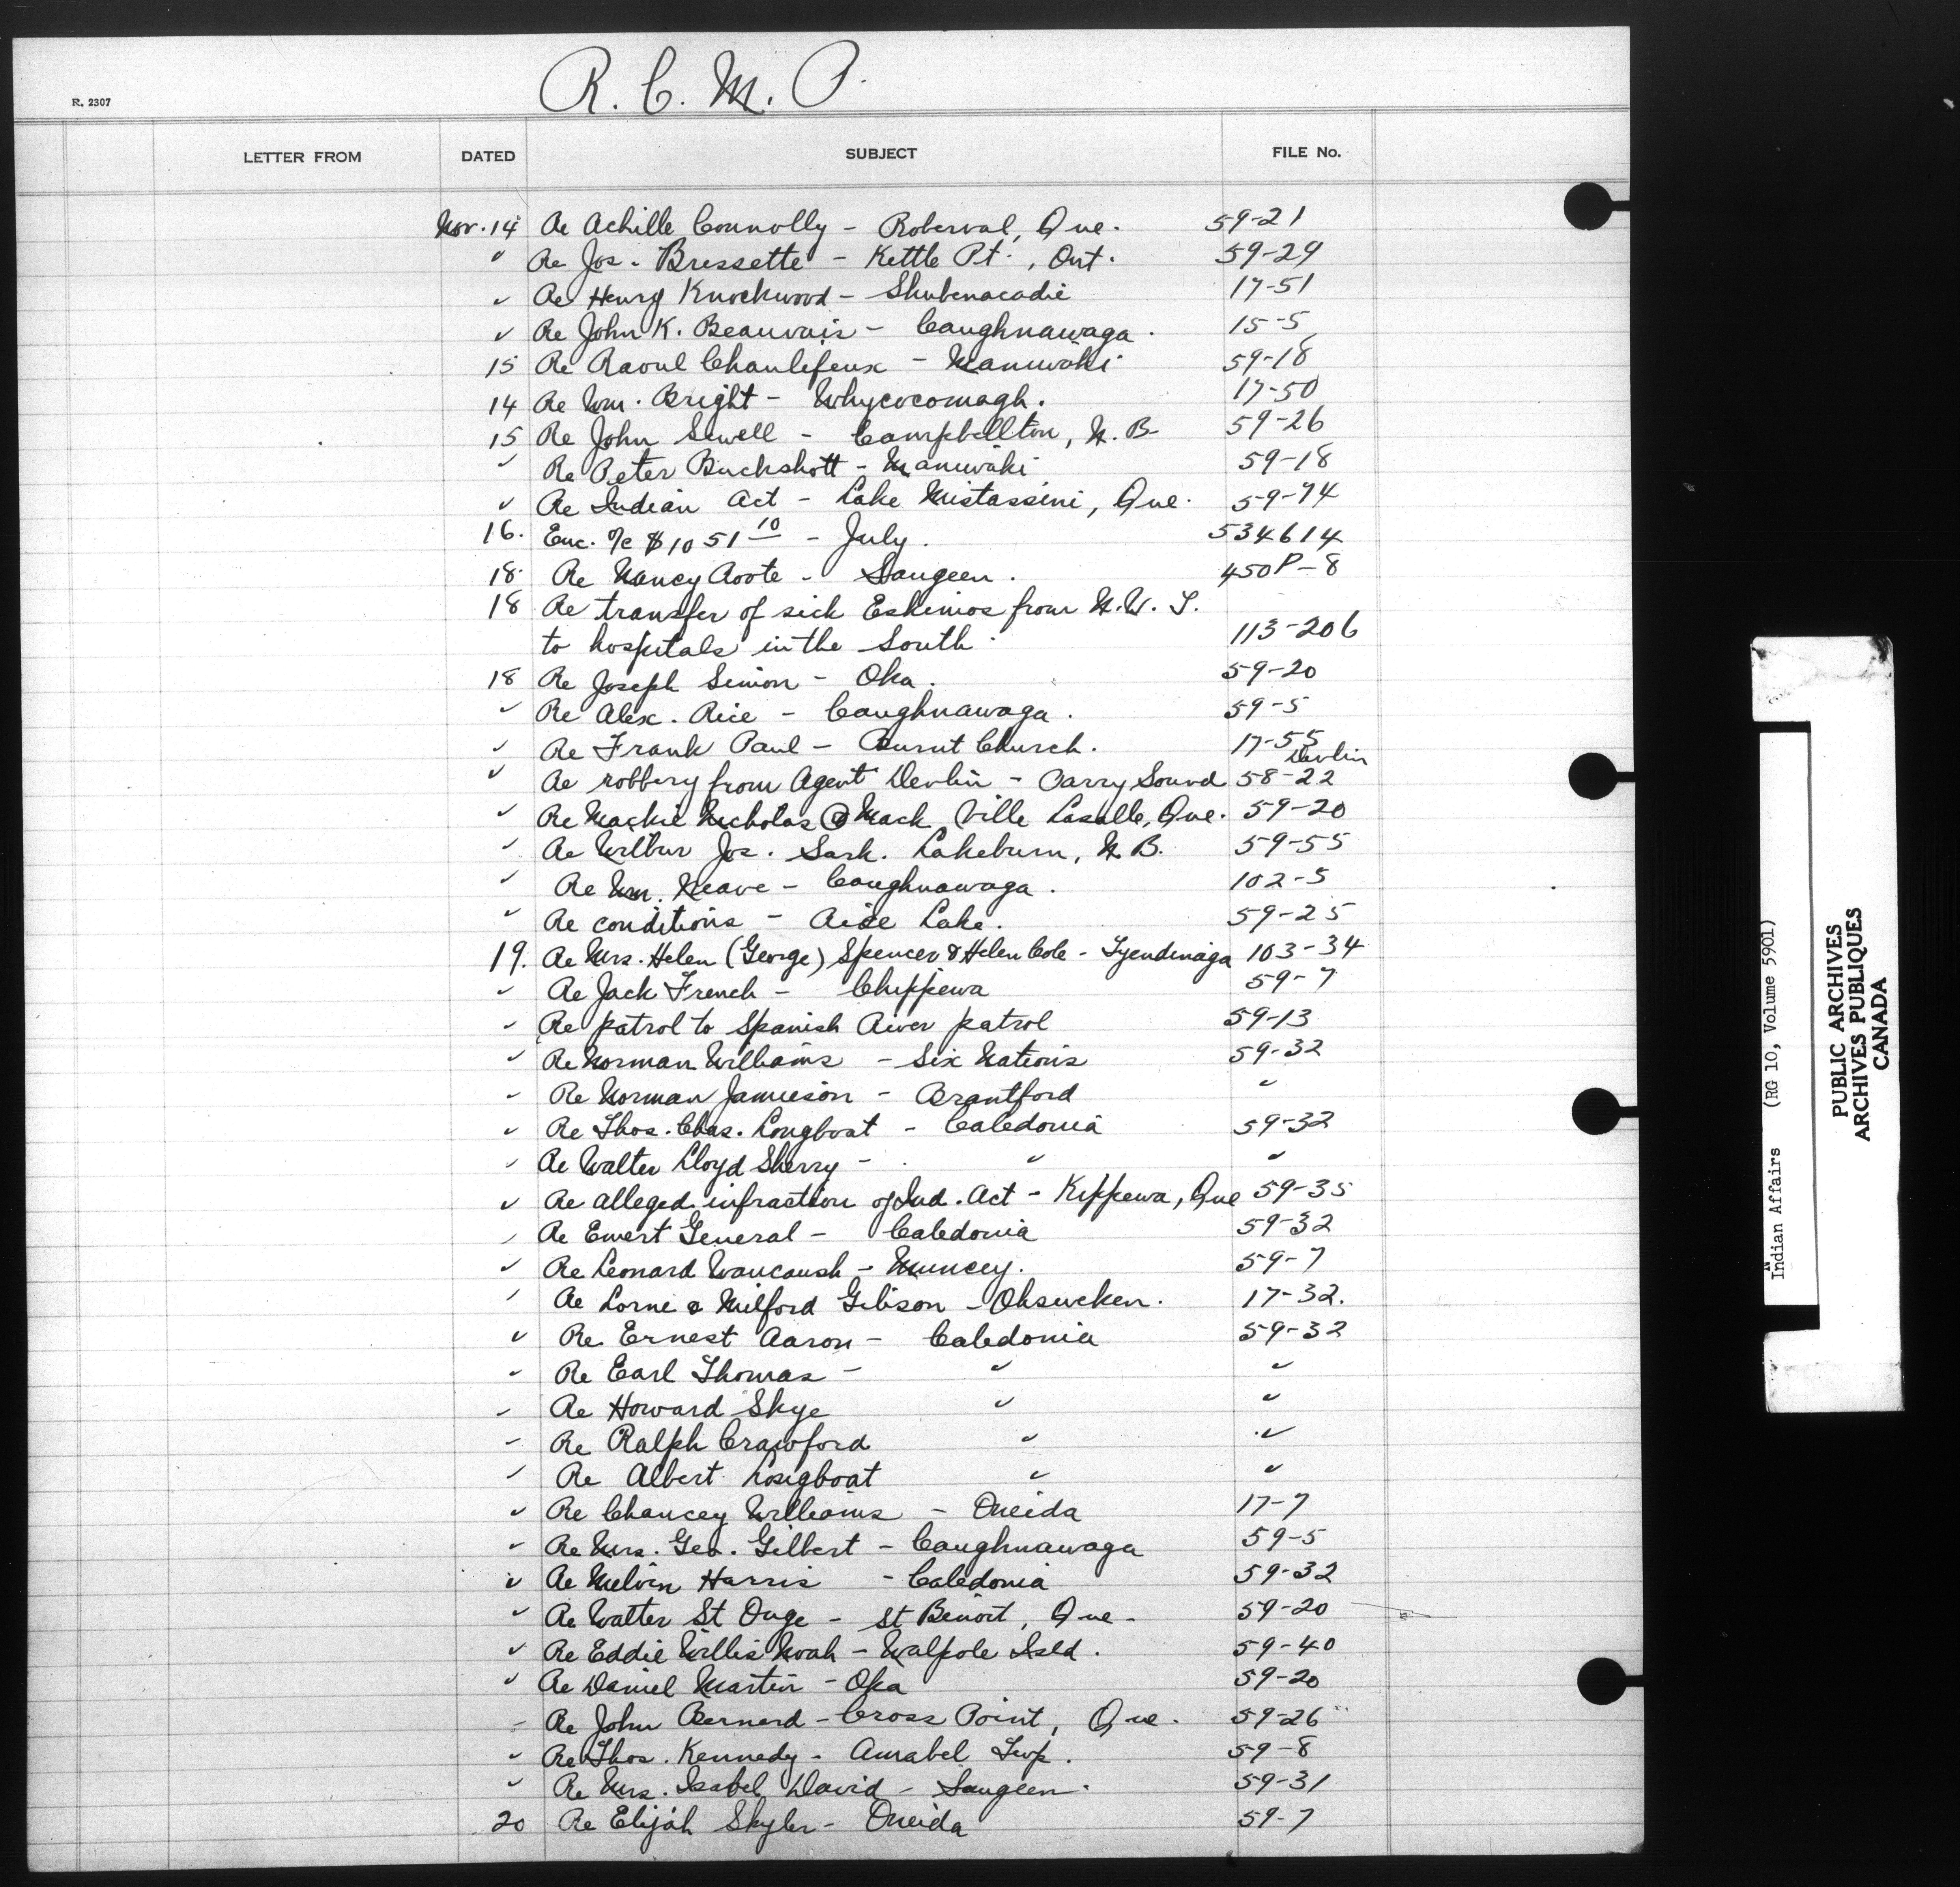 R. C. M. P.
R. 2307
LETTER FROM DATED SUBJECT FILE No.
Nov. 14 Re Achille Connolly - Roberval, Que. 59-21
" Re Jos. Bressette - Kettle Pt., Ont. 59-29
" Re Henry Knockwood - Shubenacadie 17-51
" Re John K. Beauvais - Caughnawaga. 15-5
15 Re Raoul Chaulifoux - Maniwaki 59-18
14 Re Wm. Bright - Whycocomagh. 17-50
15 Re John Sewell - Campbellton, N.B. 59-26
" Re Peter Buckshott - Maniwaki 59-18
" Re Indian Act - Lake Mistassini, Que. 59-74
16. Enc. o/c $1051 10 - July. 534614
18 Re Nancy Roote - Saugeen. 450P-8
18 Re transfer of sick Eskimos from N.W.T.
to hospitals in the South 113-206
18 Re Joseph Simon - Oka. 59-20
" Re Alex. Rice - Caughnawaga. 59-5
" Re Frank Paul - Burnt Church. 17-55
Devlin
" Re robbery from Agent Devlin - Parry Sound 58-22
" Re Mackie Nicholas @ Mack, Ville Lasalle, Que. 59-20
" Re Wilbur Jos. Sark. Lakeburn, N.B. 59-55
" Re Wm. Neave - Caughnawaga. 102-5
" Re conditions - Rice Lake. 59-25
19. Re Mrs. Helen (George) Spencer & Helen Cole - Tyendinaga 103-34
" Re Jack French - Chippewa 59-7
" Re patrol to Spanish River patrol 59-13
" Re Norman Williams - Six Nations 59-32
" Re Norman Jamieson - Brantford "
" Re Thos. Chas. Longboat - Caledonia 59-32
" Re Walter Lloyd Sherry - " "
" Re alleged infraction of Ind. Act - Kippewa, Que 59-35
" Re Emert General - Caledonia 59-32
" Re Leonard Waucaush - Muncey. 59-7
" Re Lorne & Milford Gibson - Ohsweken. 17-32.
" Re Ernest Aaron - Caledonia 59-32
" Re Earl Thomas - " "
" Re Howard Skye " "
" Re Ralph Crawford " "
" Re Albert Longboat " "
" Re Chancey Williams - Oneida 17-7
" Re Mrs. Geo. Gilbert - Caughnawaga 59-5
" Re Melvin Harris - Caledonia 59-32
" Re Walter St Onge - St Benoit, Que. 59-20
" Re Eddie Willis Noah - Walpole Isld. 59-40
" Re Daniel Martin - Oka 59-20
" Re John Bernard - Cross Point, Que. 59-26
" Re Thos. Kennedy - Amabel Twp. 59-8
" Re Mrs. Isabel David - Saugeen. 59-31
20 Re Elijah Skyler - Oneida 59-7
Indian Affairs (RG 10, Volume 5901)
PUBLIC ARCHIVES
ARCHIVES PUBLIQUES
CANADA